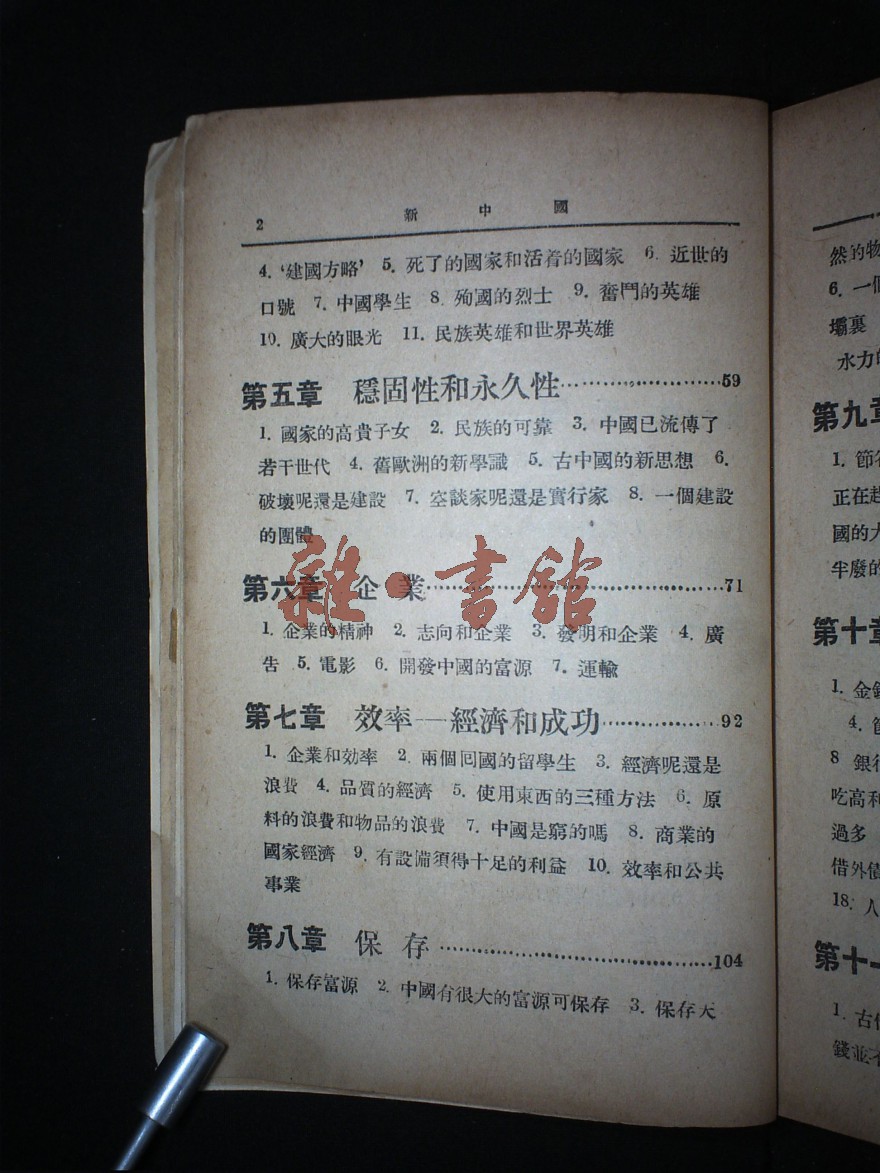 2 新中國
4. ‘建國方略’ 5. 死了的國家和活着的國家 6. 近世的
口號 7. 中國學生 8. 殉國的烈士 9. 奮鬥的英雄
10. 廣大的眼光 11. 民族英雄和世界英雄
第五章 穩固性和永久性……………………59
1. 國家的高貴子女 2. 民族的可靠 3. 中國已流傳了
若干世代 4. 舊歐洲的新學識 5. 古中國的新思想 6.
破壞呢還是建設 7. 空談家呢還是實行家 8. 一個建設
的團體
雜·書館
第六章 企業……………………71
1. 企業的精神 2. 志向和企業 3. 發明和企業 4. 廣
告 5. 電影 6. 開發中國的富源 7. 運輸
第七章 效率——經濟和成功……………92
1. 企業和効率 2. 兩個囘國的留學生 3. 經濟呢還是
浪費 4. 品質的經濟 5. 使用東西的三種方法 6. 原
料的浪費和物品的浪費 7. 中國是窮的嗎 8. 商業的
國家經濟 9. 有設備須得十足的利益 10. 效率和公共
事業
第八章 保存……………………104
1. 保存富源 2. 中國有很大的富源可保存 3. 保存天
然的物
6. 一個
壩裏
水力的
第九章
1. 節省
正在趕
國的大
半廢的
第十章
1. 金錢
4.
8 銀行
吃高利
過多
借外債
18. 人
第十一
1. 古代
錢並不